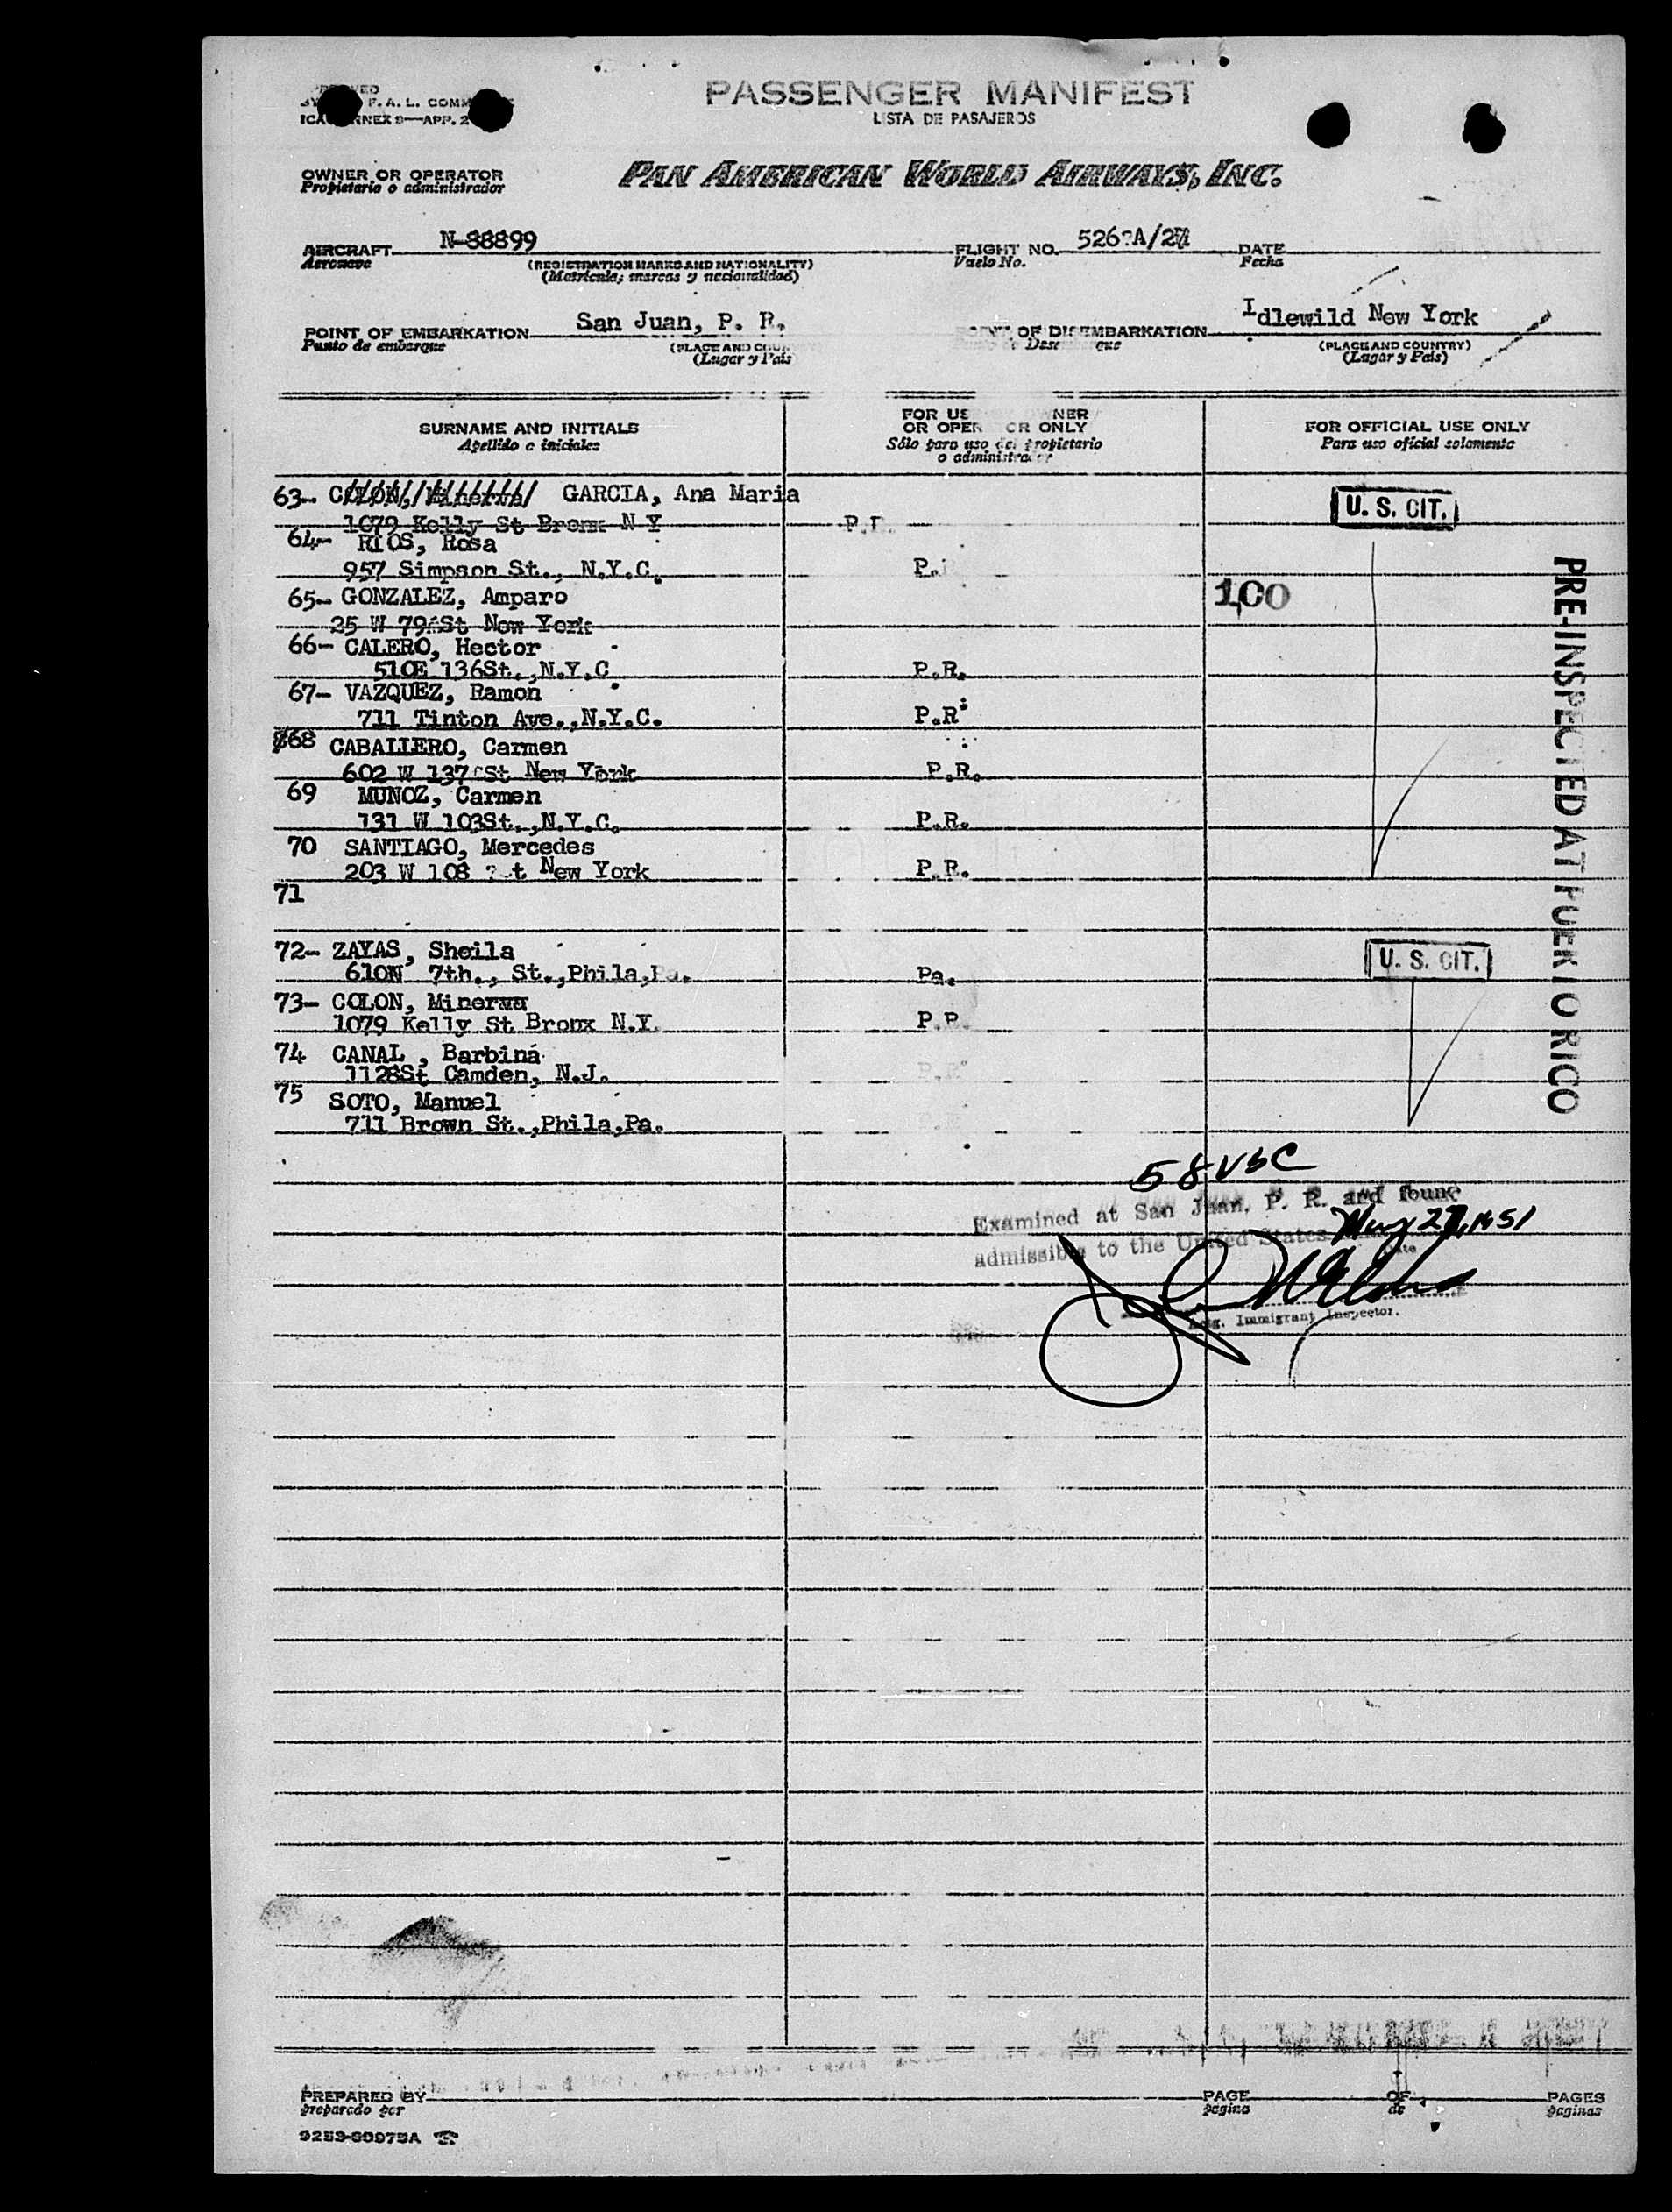 F. A. L.
PASSENGER MANIFEST
LISTA DE PASAJEROS
OWNER OR OPERATOR
Propietario o administrador
PAN AMERICAN WORLD AIRWAYS, INC.
AIRCRAFT N-88899 FLIGHT NO. DATE
Aeronave (REGISTRATION MARKS AND NATIONALITY) Vuelo No. Fecha
(Matricula; marcas y nacionalidad)
POINT OF EMBARKATION San Juan, P. R. OF DISEMBARKATION Idlewild New York
Punto de embarque (PLACE AND (PLACE AND COUNTRY)
(Lugar y Pais (Lugar y Pais)
SURNAME AND INITIALS
Apellido e iniciales
FOR OR ONLY
Sólo para uso del propietario
o administrador
FOR OFFICIAL USE ONLY
Para uso oficial solamente
63- COLON, Minerva GARCIA, Ana Maria U. S. CIT.
1079 Kelly St Bronx N Y
64- RIOS, Rosa
957 Simpson St., N.Y.C.
65- GONZALEZ, Amparo 100
25 W 79 St New York
66- CALERO, Hector
510E 136St.,N.Y.C P.R.
67- VAZQUEZ, Ramon
711 Tinton Ave.,N.Y.C. P.R
68 CABALLERO, Carmen
602 W 137 St New York P.R.
69 MUNOZ, Carmen
131 W 103St.,N.Y.C. P.R.
70 SANTIAGO, Mercedes
203 W 108 New York P.R.
71
72- ZAYAS, Sheila U. S. CIT.
610N 7th., St.,Phila,Pa. Pa.
73- COLON, Minerva
1079 Kelly St Bronx N.Y. P.R.
74 CANAL , Barbina
1128St Camden, N.J. P.R
75 SOTO, Manuel
711 Brown St.,Phila,Pa.
PRE-INSPECTED AT PUERTO RICO
58 USC
Examined at San Juan, P. R. and found
admissible to the United States
Actg. Immigrant Inspector.
PREPARED BY PAGE OF PAGES
preparado por pagina de paginas